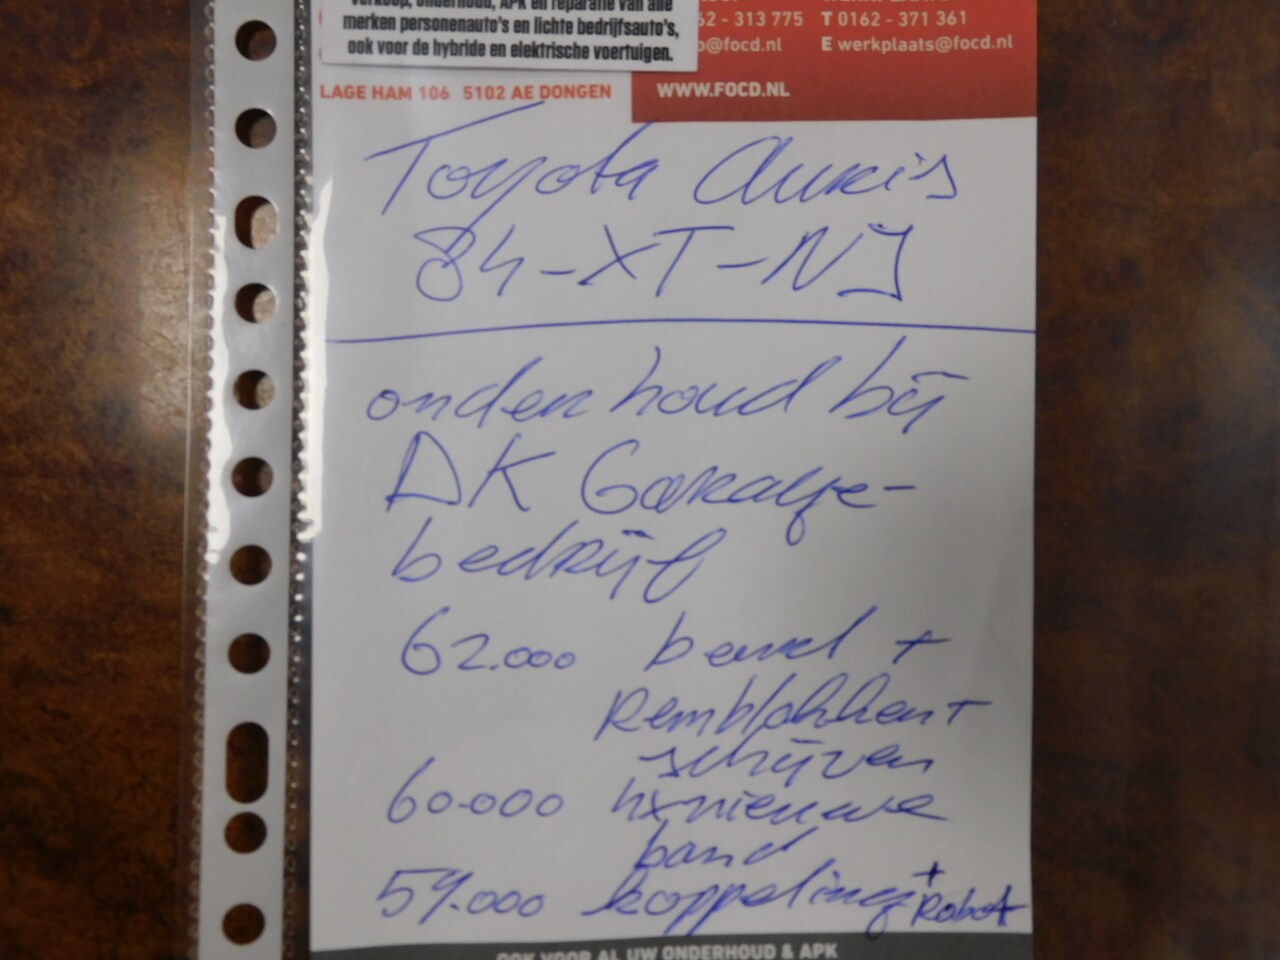 verkoop, onderhoud, APK en reparatie van alle
merken personenauto's en lichte bedrijfsauto's,
ook voor de hybride en elektrische voertuigen.
62 - 313 775 T 0162 - 371 361
o@focd.nl E werkplaats@focd.nl
LAGE HAM 106 5102 AE DONGEN
WWW.FOCD.NL
Toyota Auris
84-XT-NJ
onderhoud bij
DK Garage-
bedrijf
62.000 beurt +
Remblokken +
schijven
60.000 4x nieuwe
band
59.000 koppeling + Robot
OOK VOOR AL UW ONDERHOUD & APK